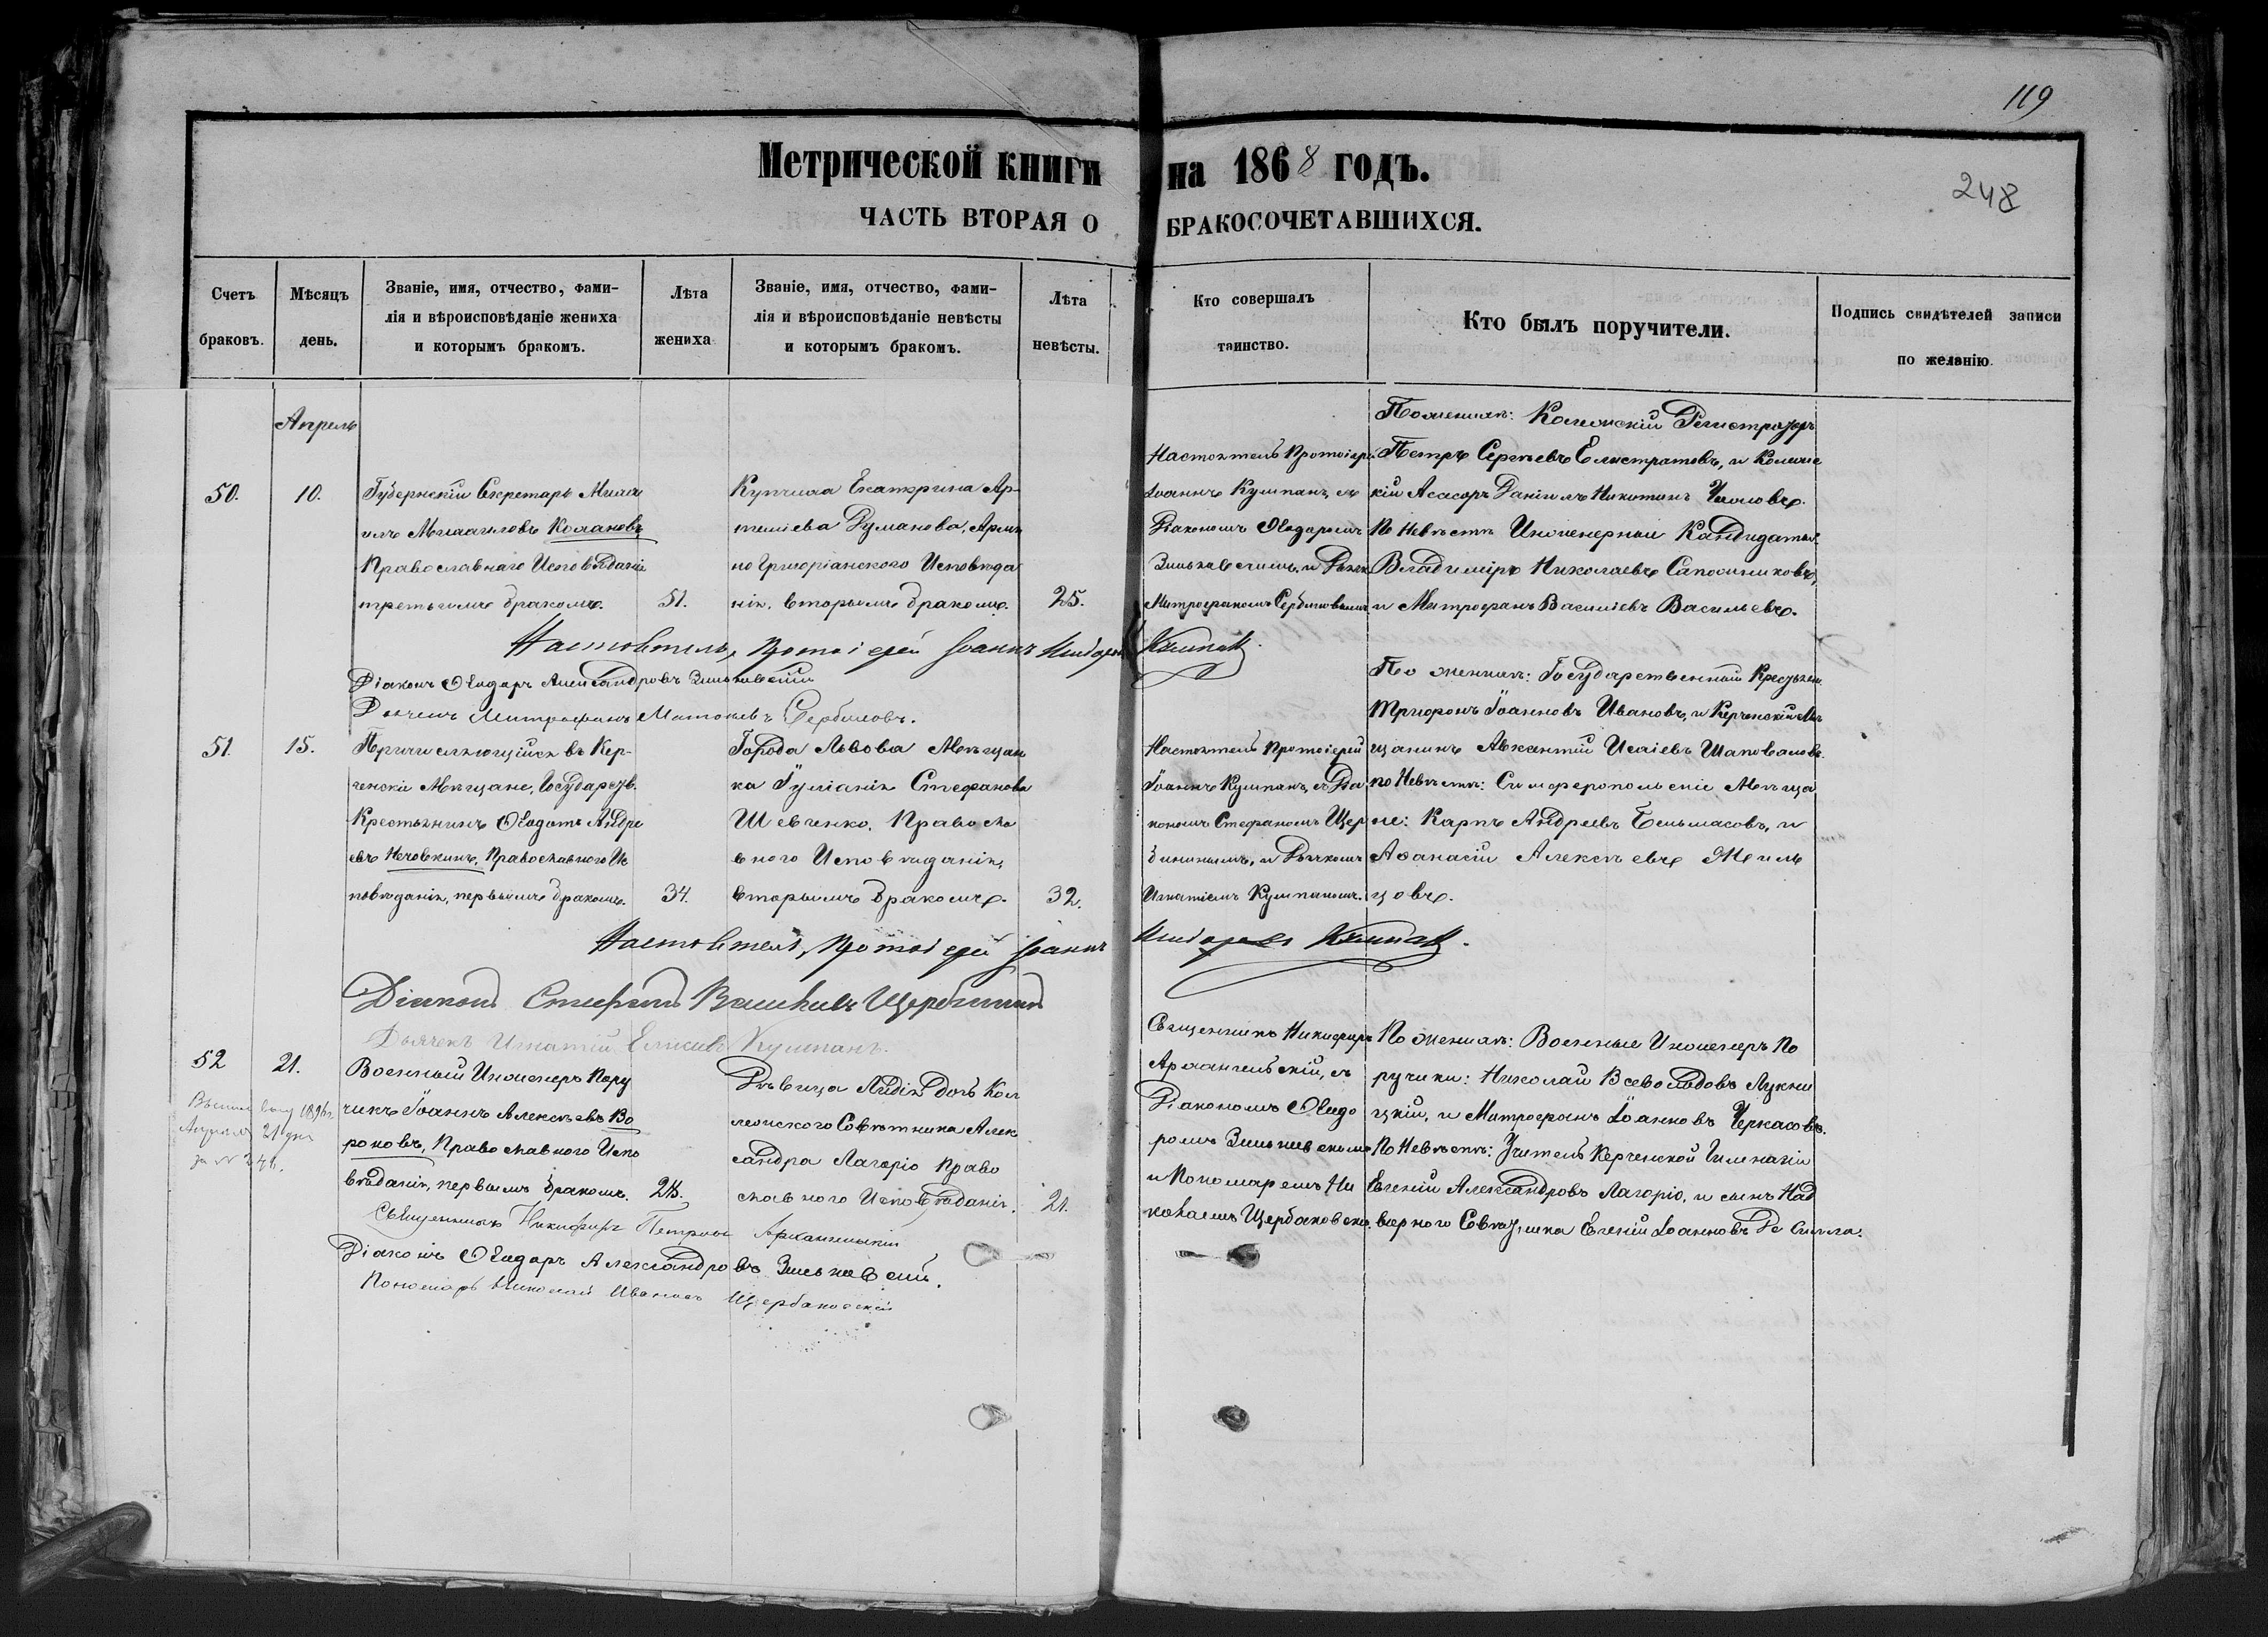 119
Метрической книги на 1868 годъ.
248
ЧАСТЬ ВТОРАЯ О БРАКОСОЧЕТАВШИХСЯ.
Счетъ браковъ.
Мѣсяцъ день.
Званіе, имя, отчество, фами-
лія и вѣроисповѣданіе жениха
и которымъ бракомъ.
Лѣта жениха
Званіе, имя, отчество, фами-
лія и вѣроисповѣданіе невѣсты
и которымъ бракомъ.
Лѣта невѣсты.
Кто совершалъ таинство.
Кто былъ поручители.
Подпись свидѣтелей записи
по желанію.
Апрель
50.
10.
Губернскій Секретарь Миха
илъ Михаиловъ Комановъ
Православнаго Исповѣданія
третьимъ бракомъ.
51.
Купчиха Екатерина Ар-
темиева Думанова, Армя
но Григоріанского Исповѣда
нія, вторымъ бракомъ.
25.
Настоятель Протоіерей
Іоаннъ Кумпанъ, съ
Діакономъ Ѳеодоромъ
Зиньковскимъ, и Дьяч
Митрофаномъ Сербиновымъ
По женихѣ: Колежскій Регистраторъ
Петръ Сергѣевъ Елистратовъ, и Колежс
кій Асесоръ Даніилъ Никитинъ
По Невѣстѣ Инженерный Кандидатъ
Владиміръ Николаевъ Сапожниковъ,
и Митрофанъ Василіевъ Васильевъ.
Настоятель, Протоіерей Іоаннъ Кумпанъ.
Діаконъ Ѳеодоръ Александровъ Зиньковскій
Дьячекъ Митрофанъ Сербиновъ.
51.
15.
Причисляющійся въ Кер-
ченскіе Мѣщане, Государств.
Крестьянинъ Ѳеодотъ Андре
евъ Нечовкинъ, Православного Ис
повѣданія, первымъ бракомъ.
34.
Города Львова Мѣщан
ка Гуліанія Стефанова
Шевченко, Правосла
вного Исповѣданія,
вторымъ бракомъ.
32.
Настоятель Протоіерей
Іоаннъ Кумпанъ, съ Діа
кономъ Стефаномъ Щер
бининымъ, и Дьячкомъ
Игнатіемъ Кумпаномъ.
По женихѣ: Государственный Крестьян.
Трифонъ Іоанновъ Ивановъ, и Керченскій Мѣ
щанинъ Авксентій Исаіевъ Шаповаловъ.
по Невѣстѣ: Симферопольскіе Мѣща
не: Карпъ Андреевъ Бельмасовъ, и
Аѳанасій Алексѣевъ Жиль
цовъ.
Настоятель, Протоіерей Іоаннъ Кумпанъ.
Діаконъ Стефанъ Васильевъ Щербининъ
Дьячекъ Игнатій Елисеевъ Кумпанъ.
52
21.
Апреля 21 дня
Военный Инженеръ Пору
чикъ Іоаннъ Алексѣевъ Во
роновъ, Православного Испо
вѣданія, первымъ бракомъ.
28.
Дѣвица Лидія Дочь Кол
лежского Совѣтника Алек
сандра Лагоріо Право
славного Исповѣданія.
21.
Священникъ Никифоръ
Архангельскій, съ
Діакономъ Ѳеодо
ромъ Зиньковскимъ
и Пономаремъ Ни
колаемъ Щербаковско.
По женихѣ: Военные Инженеръ По
ручики: Николай Всеволодовъ Лукни
цкій, и Митрофанъ Іоанновъ Черкасовъ.
По Невѣстѣ: Учитель Керченской Гимназіи
Евгеній Александровъ Лагоріо, и сынъ Над
ворного Совѣтника Евгеній Іоанновъ Де Силла.
Священникъ Никифоръ Петровъ Архангельскій
Діаконъ Ѳеодоръ Александровъ Зиньковскій.
Пономарь Николай Ивановъ Щербаковскій